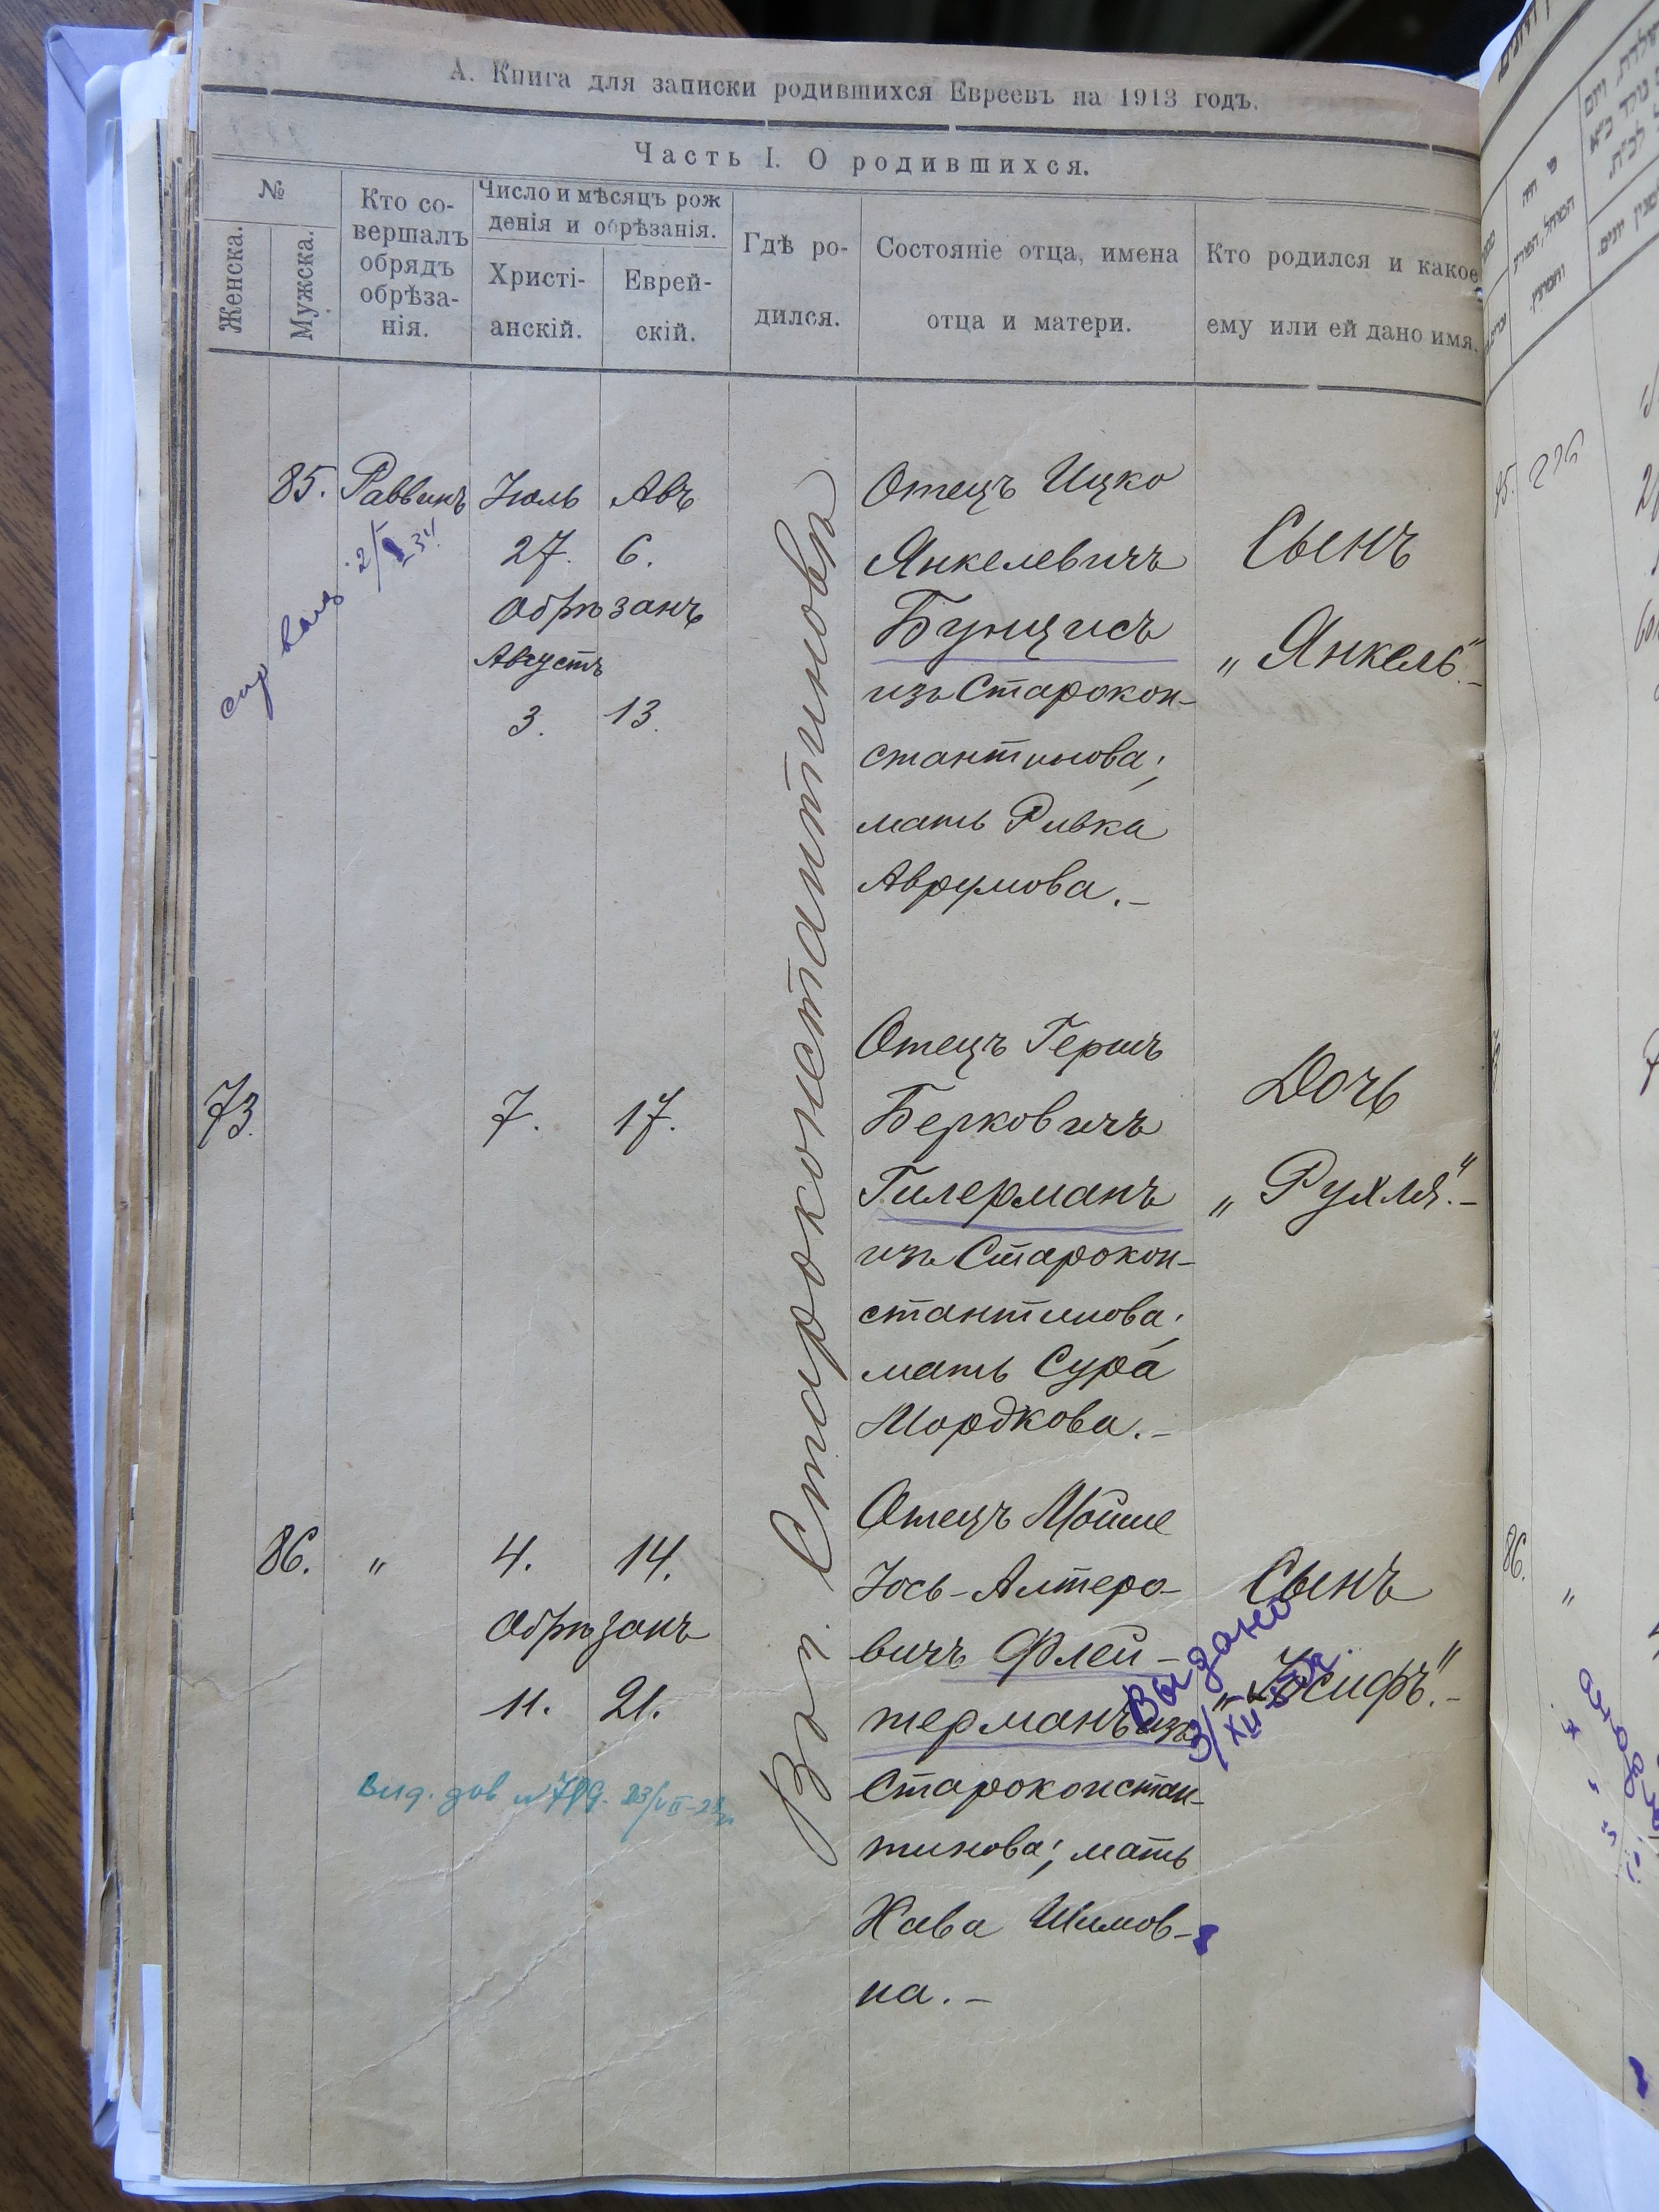 А. Книга для записки родившихся Евреевъ на 1913 годъ.
Часть I. О родившихся.
№
Женска.
Мужска.
Кто со-
вершалъ
обрядъ
обрѣза-
нія.
Число и мѣсяцъ рож
денія и обрѣзанія.
Христі-
анскій.
Еврей-
скій.
Гдѣ ро-
дился.
Состояніе отца, имена
отца и матери.
Кто родился и какое
ему или ей дано имя.
85.
Раввинъ
Іюль
27.
Авъ
6.
Обрѣзанъ
Августъ
3. 13.
Въ г. Староконстантиновѣ
Отецъ Ицко
Янкелевичъ
Бунцисъ
изъ Старокон-
стантинова;
мать Ривка
Аврумова.-
Сынъ
„Янкель".-
73.
7. 17.
Отецъ Гершъ
Берковичъ
Гилерманъ
изъ Старокон-
стантинова;
мать Сура
Мордкова.-
Дочь
„Рухля".-
86. „ 4. 14.
Обрѣзанъ
11. 21.
Отецъ Мойше
Іось-Алтеро-
вичъ Флей-
терманъ изъ
Староконстан-
тинова; мать
Хава Шимов-
на.-
Сынъ
„Іосифъ".-
Выдано
3/XII
Вид. дов
85.
86.
„